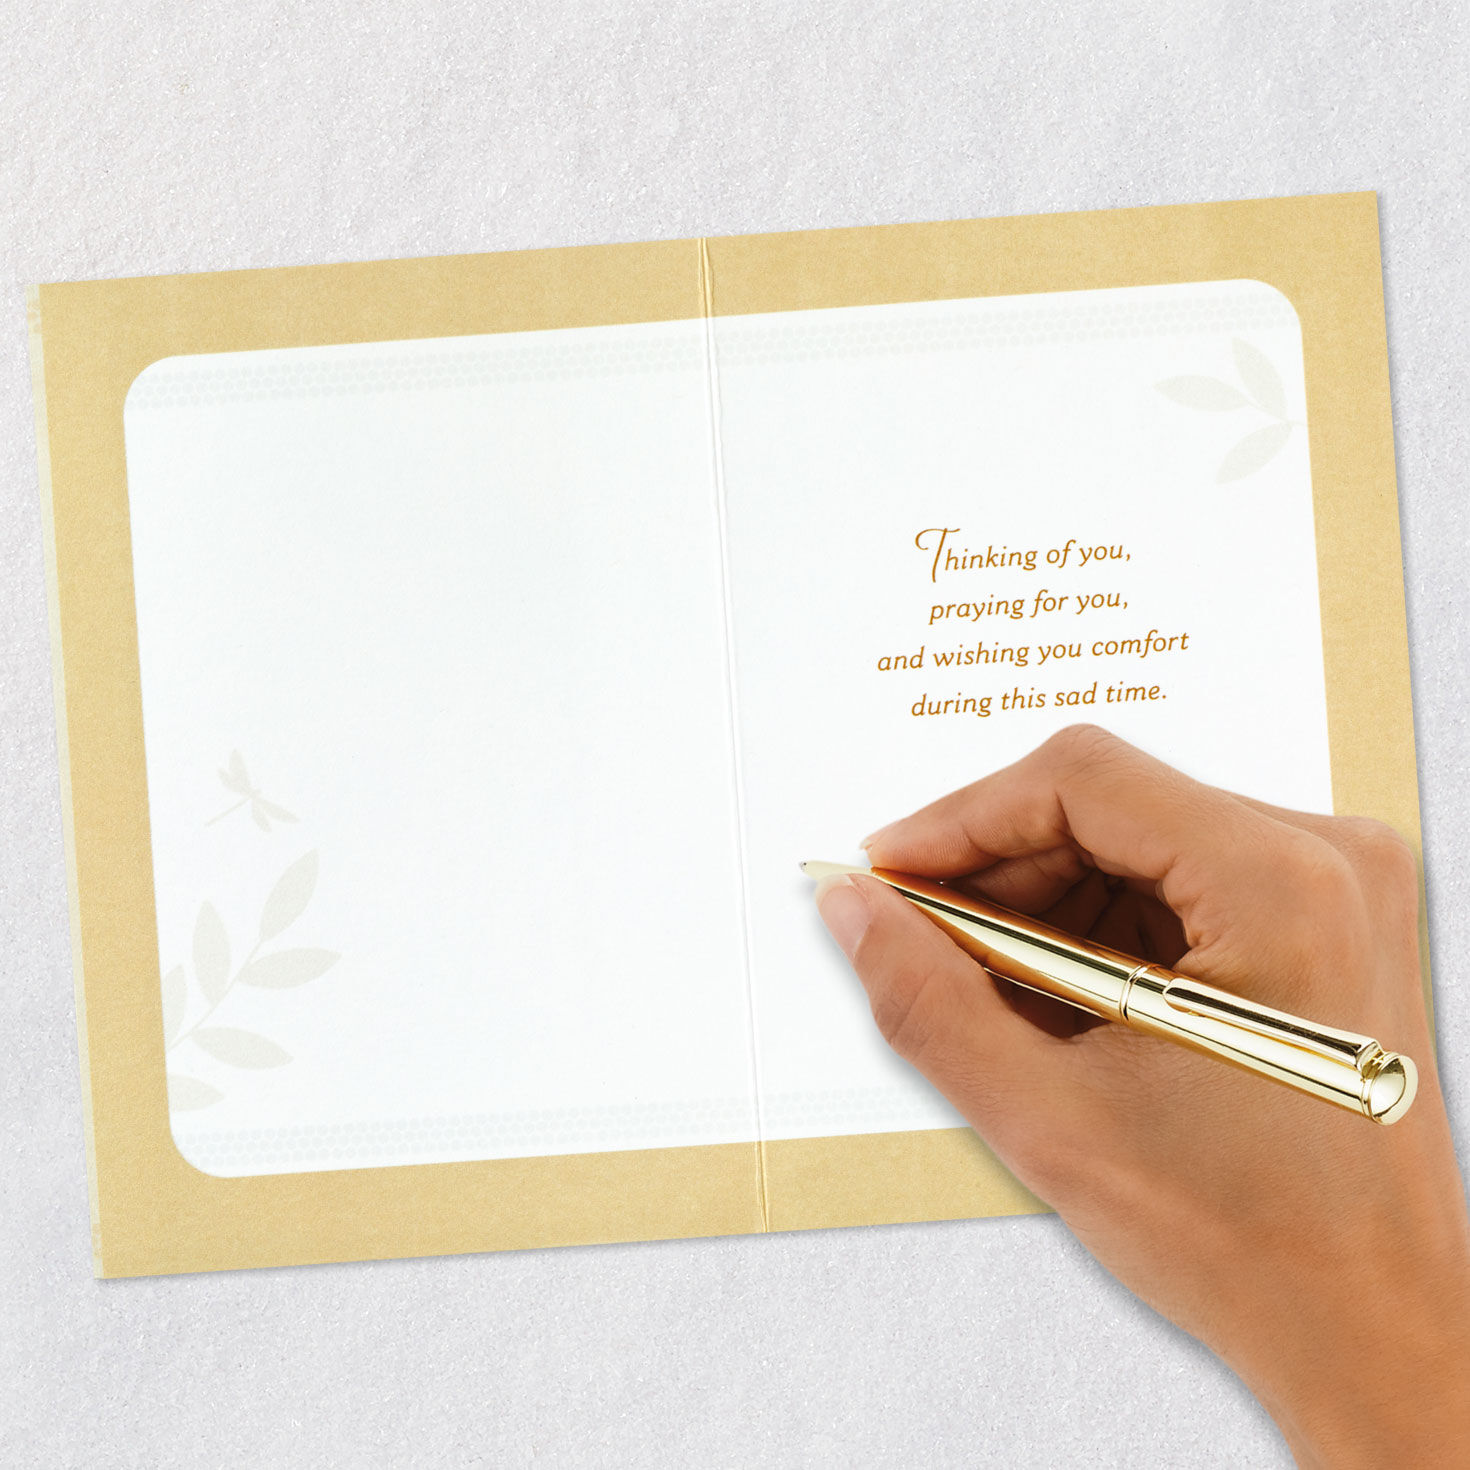 Thinking of you,
praying for you,
and wishing you comfort
during this sad time.